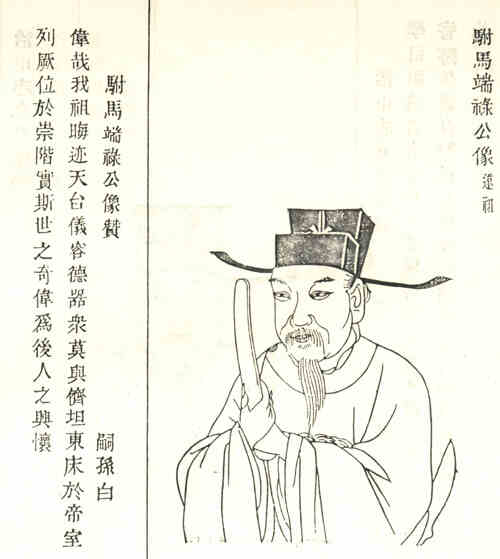 駙馬端祿公像 遠祖
駙馬端祿公像贊
嗣孫白
偉哉我祖晦迹天台儀容德器衆莫與儕坦東床於帝室
列厥位於崇階實斯世之奇偉爲後人之興懷